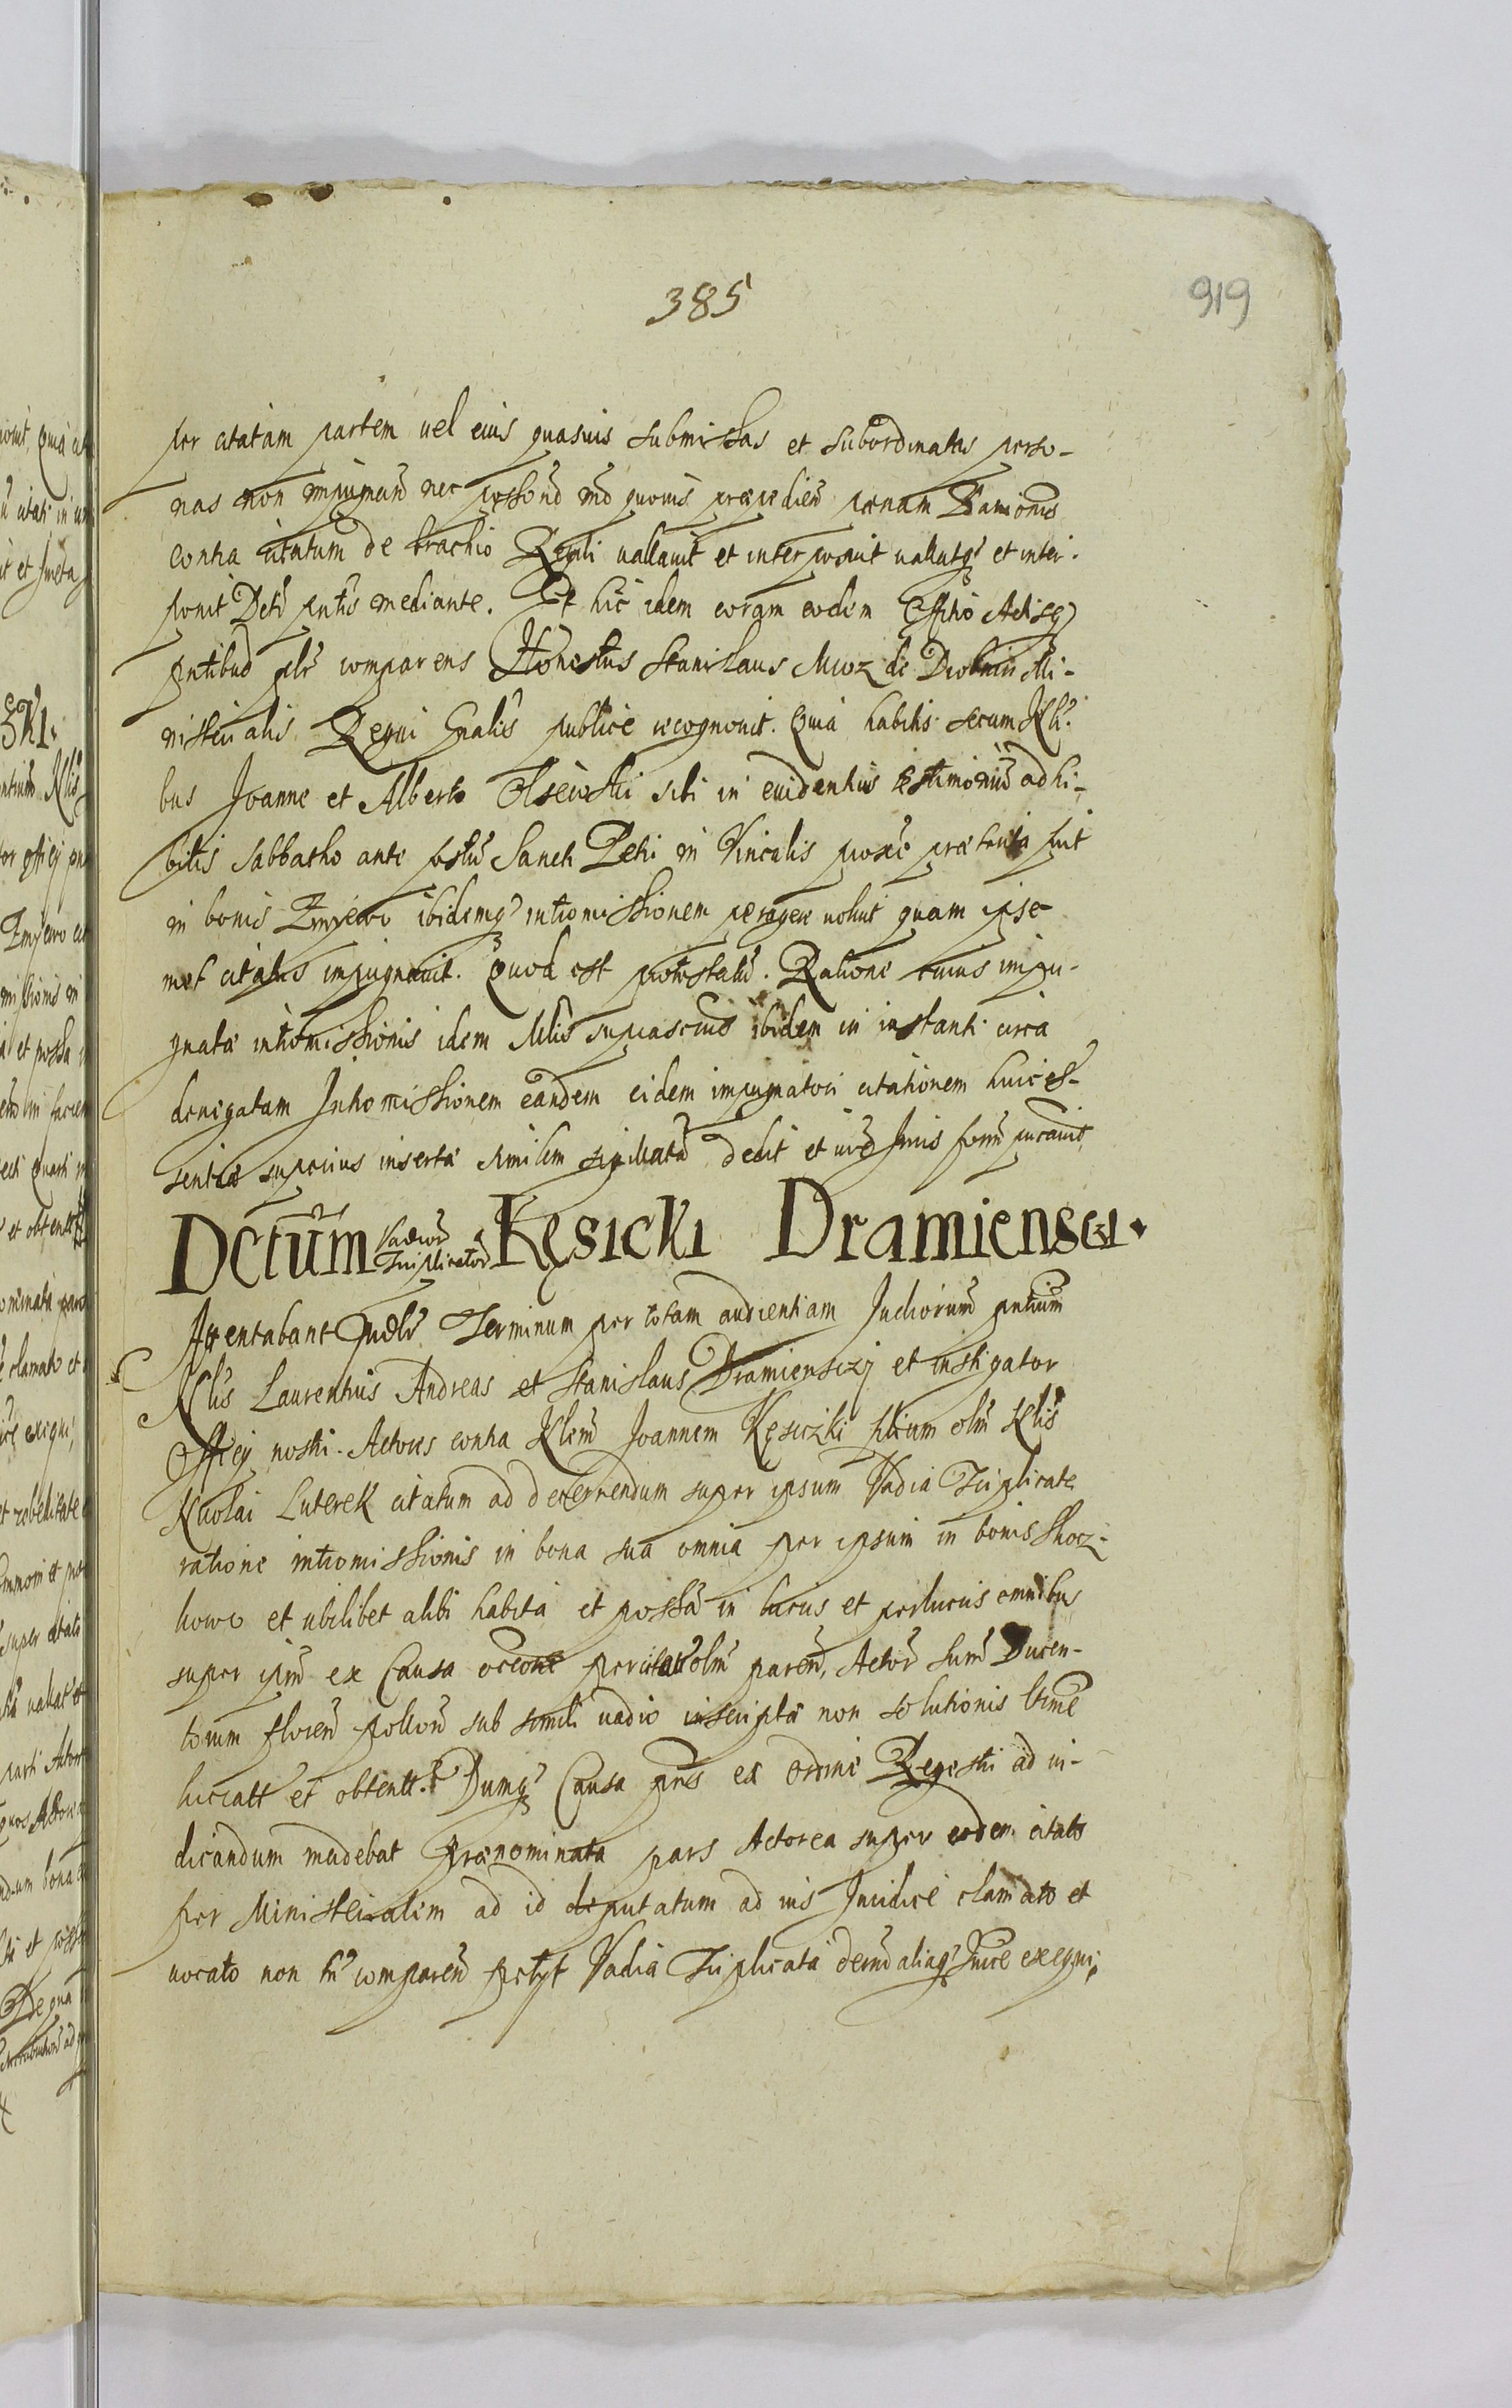 385
919
per citatam partem uel eius quasuis submissas et subordinatas perso-
nas non impugnand nec possend md quouis præpedien pænam Bannionis
contra citatum de brachio Regali vallauit et interposuit vallatq et inter-
ponit Decti pntis mediante. Et hic idem coram eodem Officio Actisq
pntibus plr comparens Honestus Stanislaus Mroz de Drobnin Mi-
nisterialis Regni Gnalis publice recognouit. Quia habitis secum Nli-
bus Joanne et Alberto Olsewski sibi in euidentius testimonium adhi-
bitis Sabbatho ante festum Sancti Petri in Vinculis proxe præterito fuit
in bonis Zmyewo ibidemq intromissionem peragere voluit quam ipse
met citatus impugnauit. Quod est protestatus. Ratione cuius impu-
gnatæ intromissionis idem Mlis suprascrius ibidem in instanti circa
denegatam Intromissionem eandem eidem impugnatori citationem huic es-
sentiæ superius insertæ similem sigillatam dedit et iure Juris form
Dctum Vadiorum Triplicator Kęsicki Dramienscy.
Attentabant Judlr Terminum per totam audientiam Judiciorum pntium
Nlis Laurentius Andreas et Stanislaus Dramienscij et instigator
Officij nostri. Actores contra Nlem Joannem Kęsiczki filium olim Nlis
Nicolai Luterek citatum ad decernendum super ipsum Vadia Triplicata
ratione intromissionis in bona sua omnia per ipsum in bonis Skocz-
kowo et ubilibet alibi habita et possa in lucris et perlucris omnibus
super ipm ex Causa occone per olm paren, Actor Sum Ducen-
torum floren pollon sub simili vadio inscriptæ non solutionis ltime
lucratt et obtentt. Dumq Causa pns ex ordine Regestri ad iu-
dicandum incidebat Prænominata pars Actorea super eodem citato
per Ministerialem ad id deputatum ad ius Juridice clamato et
uocato non tn comparen petyt Vadia Triplicata decerni aliaq Jurce exequi,